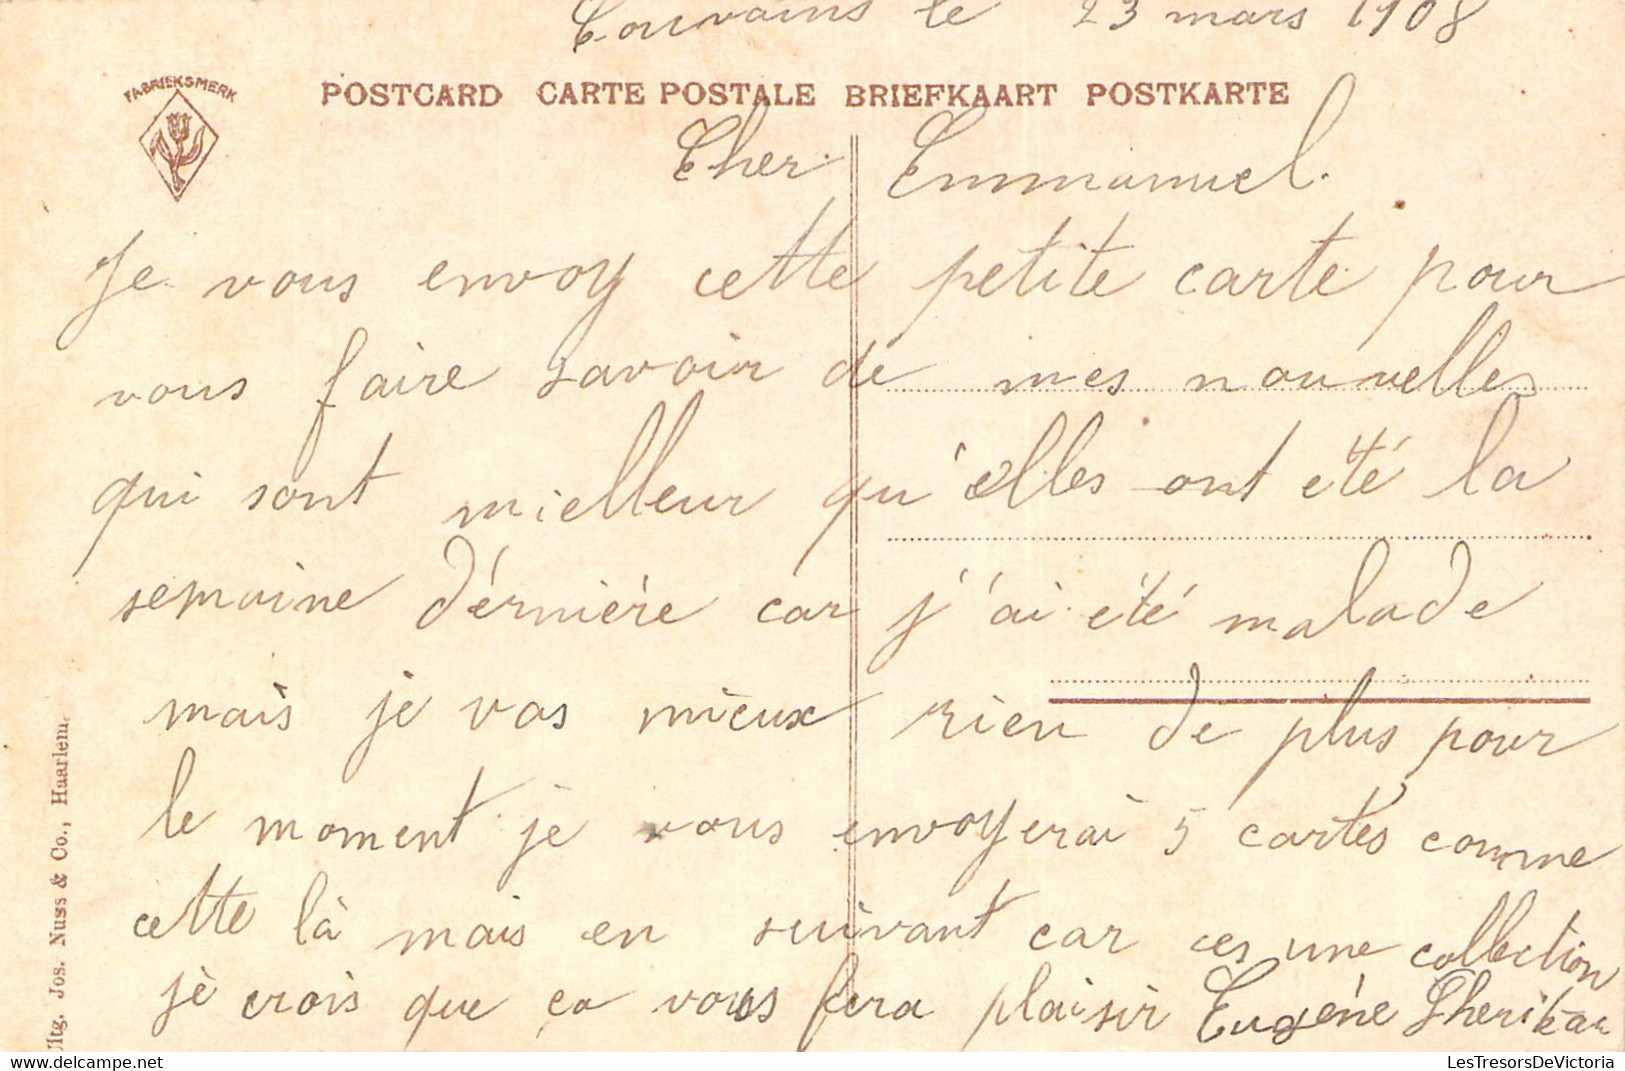 Couvains le 23 mars 1908
FABRIEKSMERK
POSTCARD CARTE POSTALE BRIEFKAART POSTKARTE
Cher Emmanuel.
Je vous envoy cette petite carte pour
vous faire savoir de mes nouvelles
qui sont mielleur qu'elles ont été la
semaine dérnière car j'ai été malade
mais je vas mieux rien de plus pour
le moment je vous envoyerai 5 cartes comme
cette là mais en suivant car ces une collection
je crois que ça vous fera plaisir Eugéne
Uitg. Jos. Nuss & Co., Haarlem.
LesTresorsDeVictoria